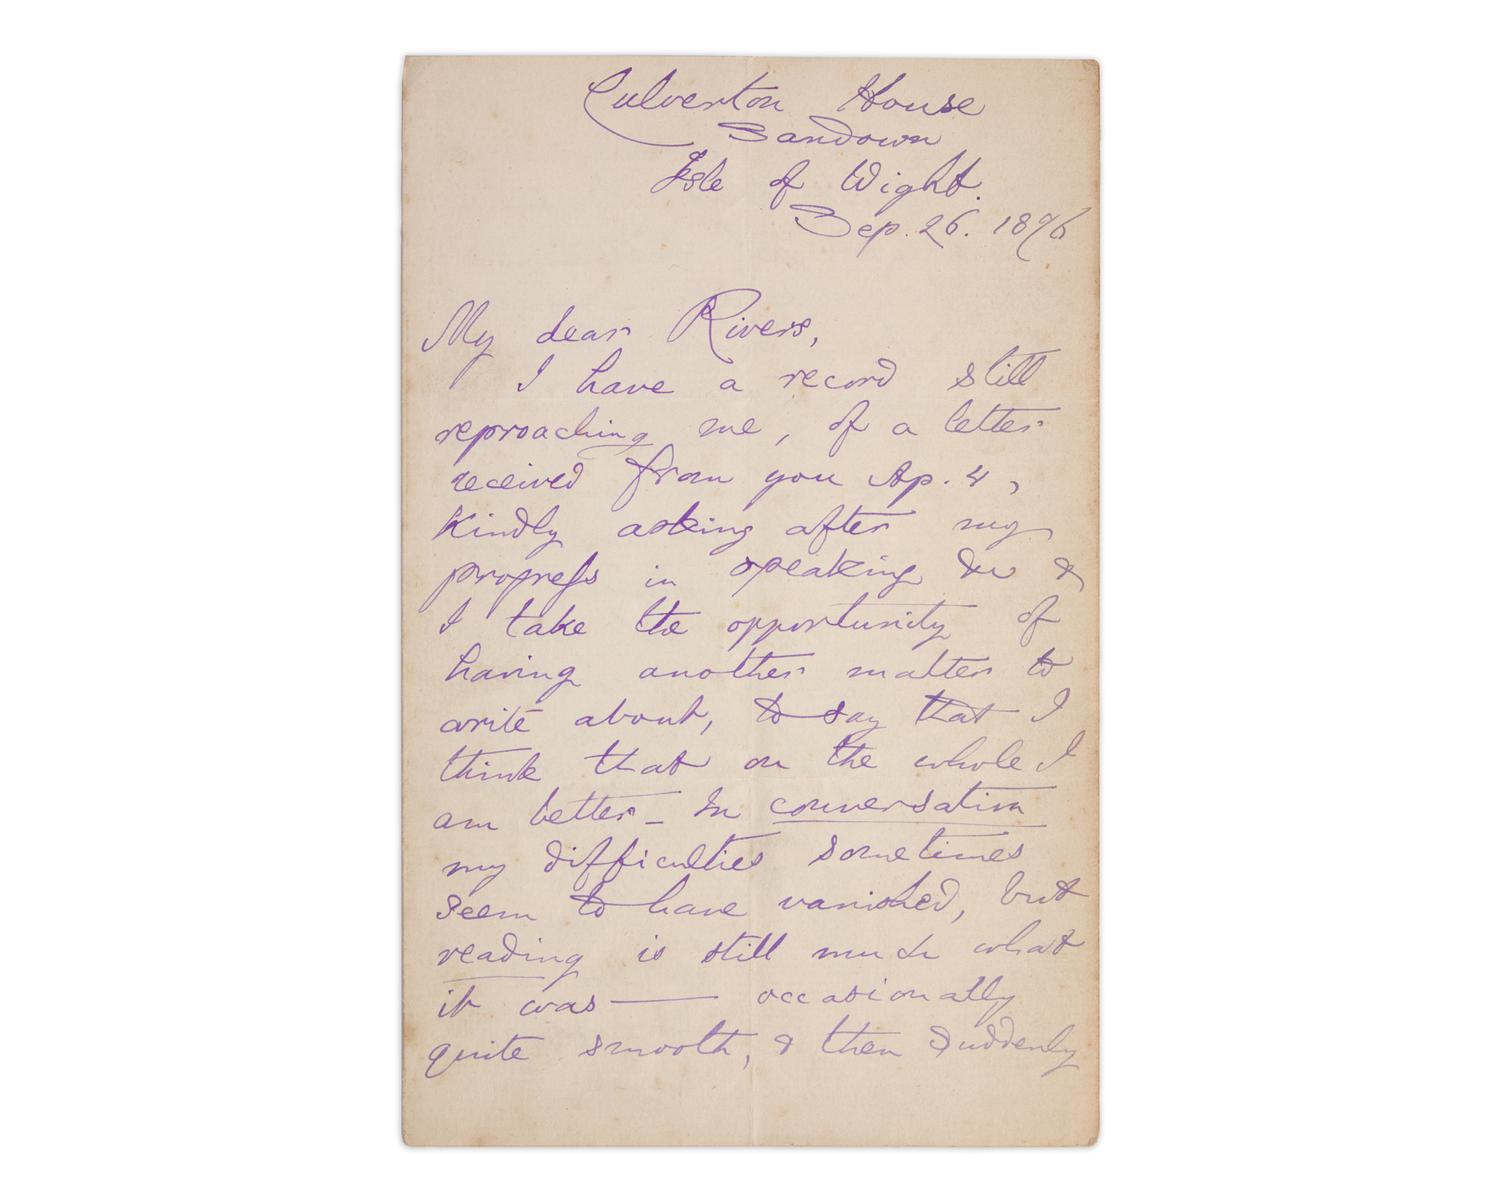 Culverton House
Sandown
Isle of Wight.
Sep. 26. 1876
My dear Rivers,
I have a record still
reproaching me, of a letter
received from you Ap. 4,
kindly asking after my
progress in speaking &c &
I take the opportunity of
having another matter to
write about, to say that I
think that on the whole I
am better — In conversation
my difficulties sometimes
seem to have vanished, but
reading is still much what
it was —— occasionally
quite smooth, & then suddenly